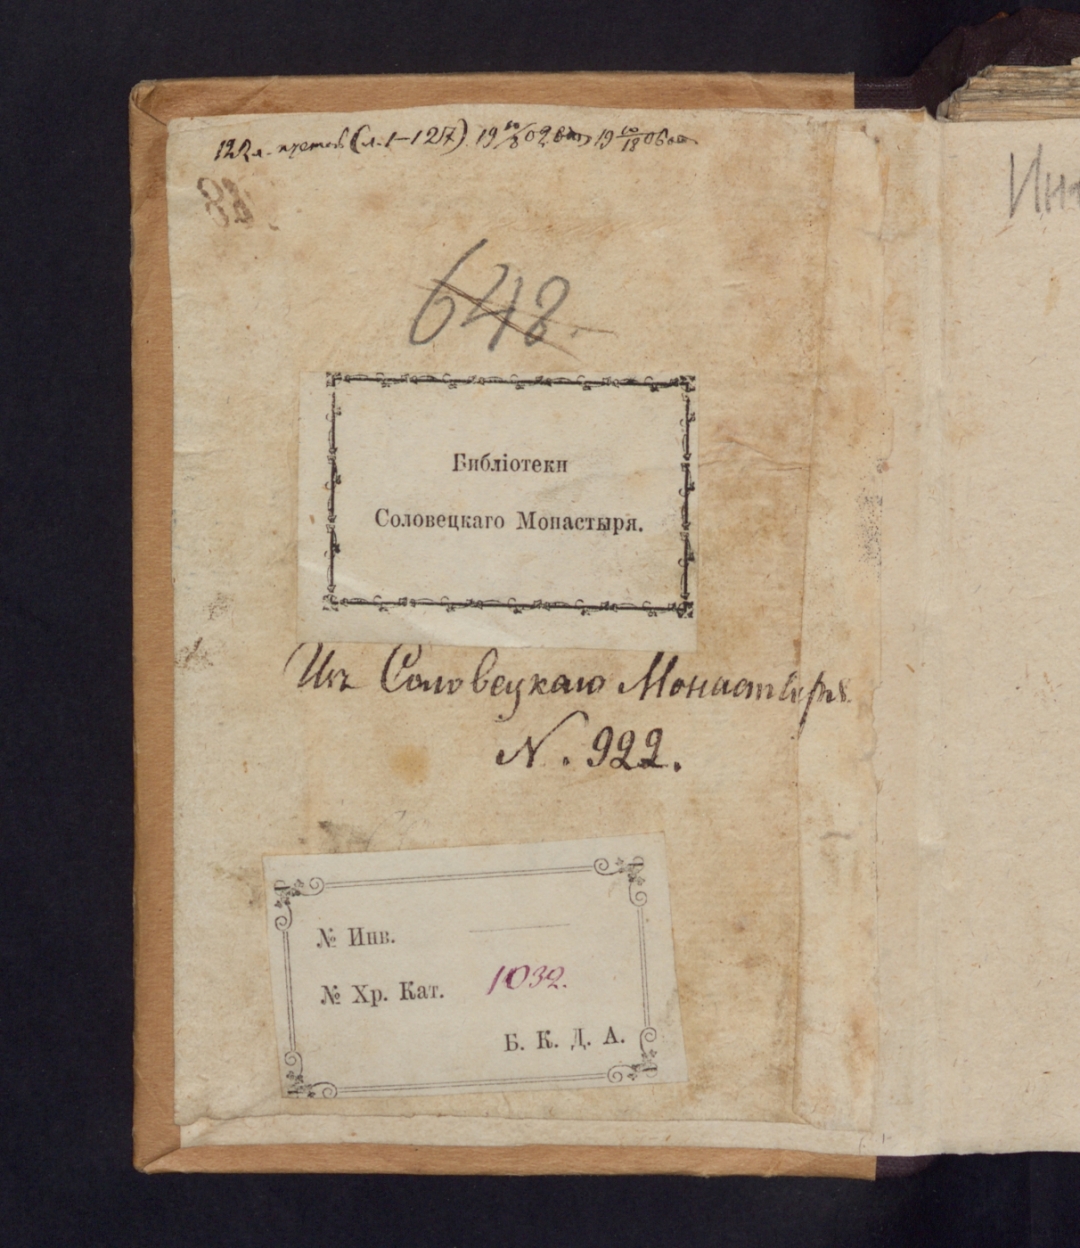 122 л. (л. 1–127) 19 10/8 02 19 10/18 06
648.
Ин
Библіотеки
Соловецкаго Монастыря.
Изъ Соловецкаго Монастыря
N. 922.
№ Инв.
№ Хр. Кат. 1032.
Б. К. Д. А.